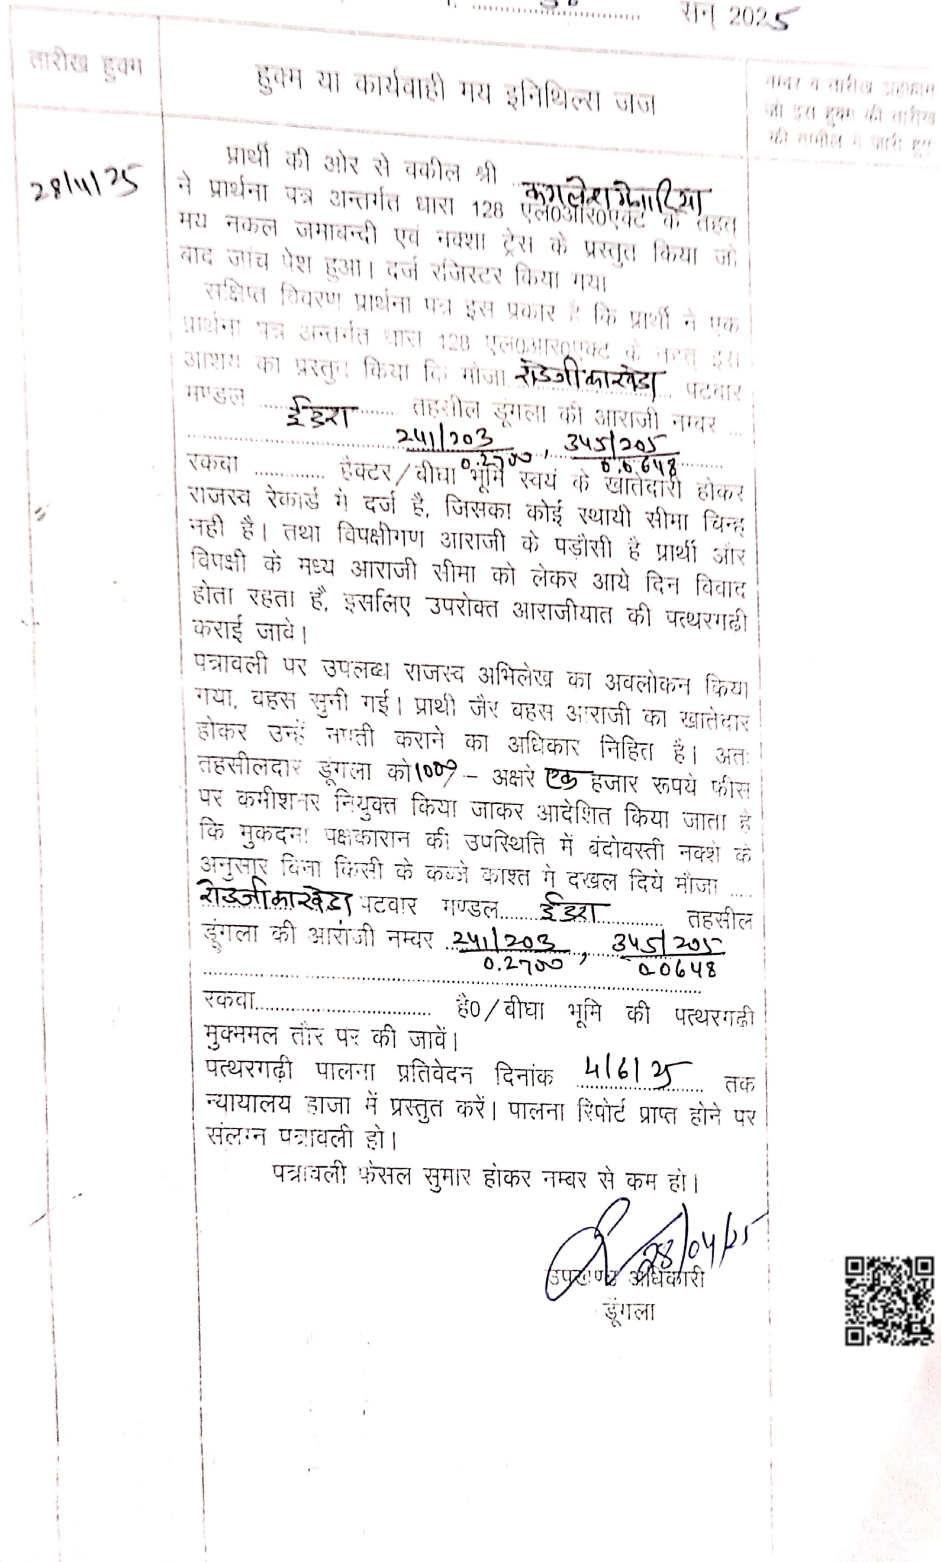 सन् 2025
तारीख हुक्म
हुक्म या कार्यवाही मय इनिशिल्स जज
नम्बर व तारीख अहकाम
जो इस हुक्म की तारीख
की तामील में जारी हुए
28/4/25
प्रार्थी की ओर से वकील श्री कमलेश मेनारिया
ने प्रार्थना पत्र अन्तर्गत धारा 128 एल0आर0एक्ट के तहत
मय नकल जमाबन्दी एवं नक्शा ट्रेस के प्रस्तुत किया जो
बाद जांच पेश हुआ। दर्ज रजिस्टर किया गया
संक्षिप्त विवरण प्रार्थना पत्र इस प्रकार है कि प्रार्थी ने एक
प्रार्थना पत्र अन्तर्गत धारा 128 एल0आर0एक्ट के तहत इस
आशय का प्रस्तुत किया कि मौजा रोडजी का खेडा पटवार
मण्डल ईडरा तहसील डूंगला की आराजी नम्बर ...
241/203, 345/205
0.2700 0.0648
रकवा ............ हैक्टर/बीघा भूमि स्वयं के खातेदारी होकर
राजस्व रेकार्ड में दर्ज है, जिसका कोई स्थायी सीमा चिन्ह
नही है। तथा विपक्षीगण आराजी के पड़ौसी है प्रार्थी और
विपक्षी के मध्य आराजी सीमा को लेकर आये दिन विवाद
होता रहता है, इसलिए उपरोक्त आराजीयात की पत्थरगढी
कराई जावे।
पत्रावली पर उपलब्ध राजस्व अभिलेख का अवलोकन किया
गया, बहस सुनी गई। प्राथी जैर बहस आराजी का खातेदार
होकर उन्हें नपती कराने का अधिकार निहित है। अतः
तहसीलदार डूंगला को 1000/- अक्षरे एक हजार रूपये फीस
पर कमीशनर नियुक्त किया जाकर आदेशित किया जाता है
कि मुकदमा पक्षकारान की उपस्थिति में बंदोवस्ती नक्शे के
अनुसार बिना किसी के कब्जे काश्त में दखल दिये मौजा ....
रोडजी का खेडा पटवार मण्डल....... ईडरा ............. तहसील
डूंगला की आराजी नम्बर 241/203, 345/205
0.2700 0.0648
रकवा............................... है0/बीघा भूमि की पत्थरगढी
मुक्ममल तौर पर की जावें।
पत्थरगढ़ी पालना प्रतिवेदन दिनांक 4/6/25 तक
न्यायालय हाजा में प्रस्तुत करें। पालना रिपोर्ट प्राप्त होने पर
संलग्न पत्रावली हो।
पत्रावली फैसल सुमार होकर नम्बर से कम हो।
28/04/25
उपखण्ड अधिकारी
डूंगला